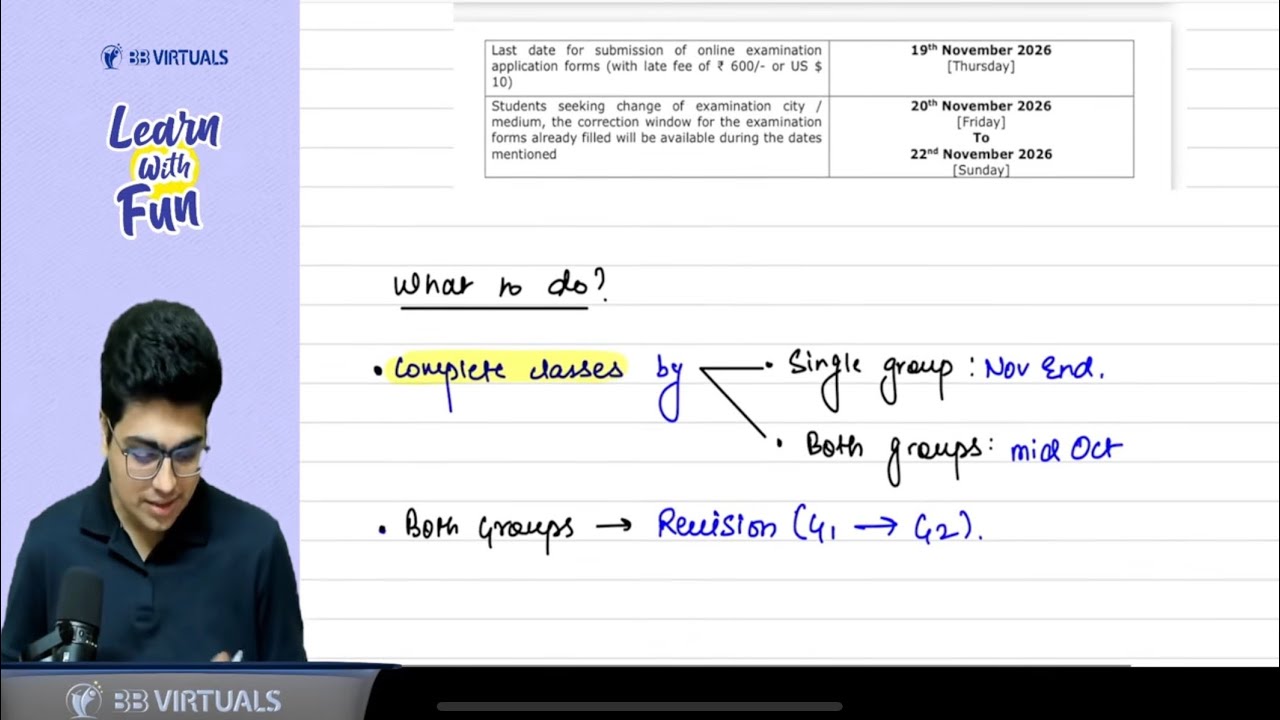 BB VIRTUALS
Learn
With
Fun
Last date for submission of online examination
application forms (with late fee of ₹ 600/- or US $
10)
19th November 2026
[Thursday]
Students seeking change of examination city /
medium, the correction window for the examination
forms already filled will be available during the dates
mentioned
20th November 2026
[Friday]
To
22nd November 2026
[Sunday]
What to do?
• Complete classes by
• Single group : Nov End.
• Both groups: mid Oct
• Both Groups → Revision (G1 → G2).
BB VIRTUALS